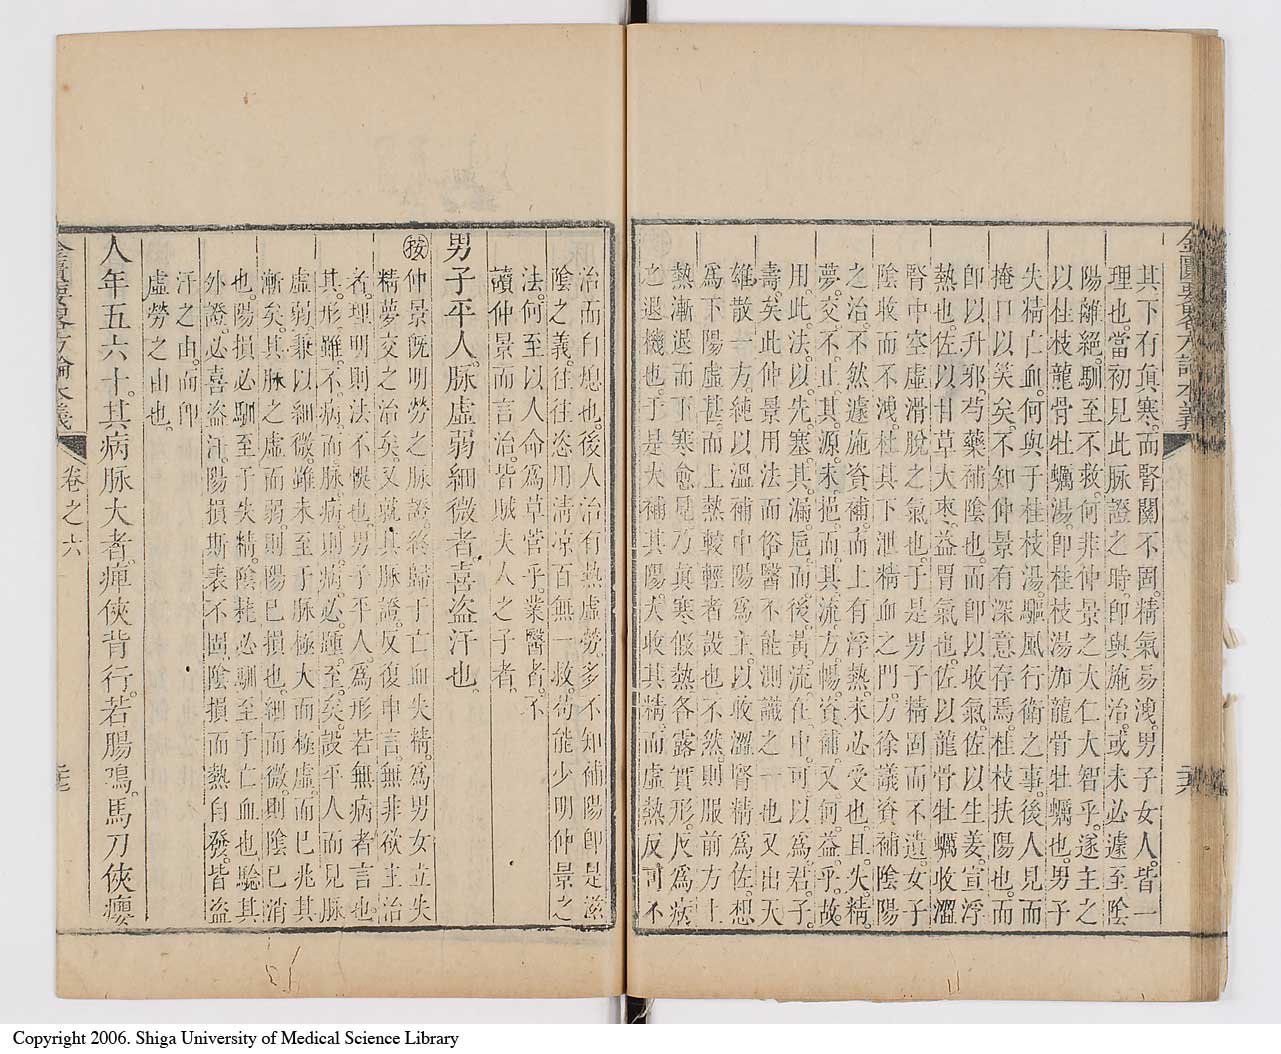 金匱要畧方論本義
其下有眞寒而腎關不固精氣易洩男子女人皆一
理也當初見此脉證之時卽與施治或未必遽至陰
陽離絕馴至不救何非仲景之大仁大智乎遂主之
以桂枝龍骨牡蠣湯卽桂枝湯加龍骨牡蠣也男子
失精亡血何與于桂枝湯驅風行衛之事後人見而
掩口以笑矣不知仲景有深意存焉桂枝扶陽也而
卽以升邪芍藥補陰也而卽以收氣佐以生姜宣浮
熱也佐以甘草大棗益胃氣也佐以龍骨牡蠣收濇
腎中空虛滑脫之氣也于是男子精固而不遺女子
陰收而不洩杜其下泄精血之門方徐議資補陰陽
之治不然遽施資補而上有浮熱未必受也且失精
夢交不止其源未挹而其流方暢資補又何益乎故
用此法以先塞其漏巵而後黃流在中可以為君子
壽矣此仲景用法而俗醫不能測識之一也又出天
雄散一方純以溫補中陽為主以收濇腎精為佐想
為下陽虛甚而上熱較輕者設也不然則服前方上
熱漸退而下寒愈見乃眞寒假熱各露實形反為病
之退機也于是大補其陽大收其精而虛熱反可不
治而自熄也後人治有熱虛勞多不知補陽卽是滋
陰之義往往恣用清凉百無一救苟能少明仲景之
法何至以人命為草菅乎業醫者不
讀仲景而言治皆賊夫人之子者
男子平人脉虛弱細微者喜盜汗也
按仲景既明勞之脉證終歸于亡血失精為男女立失
精夢交之治矣又就其脉證反復申言無非欲主治
者理明則法不悞也男子平人為形若無病者言也
其形雖不病而脉病則病必踵至矣設平人而見脉
虛弱兼以細微雖未至于脉極大而極虛而已兆其
漸矣其脉之虛而弱則陽已損也細而微則陰已消
也陽損必馴至于失精陰耗必馴至于亡血也騐其
外證必喜盜汗陽損斯表不固陰損而熱自發皆盜
汗之由而卽
虛勞之由也
人年五六十其病脉大者痺俠背行若腸鳴馬刀俠癭
金匱要畧方論本義
卷之六
Copyright 2006. Shiga University of Medical Science Library